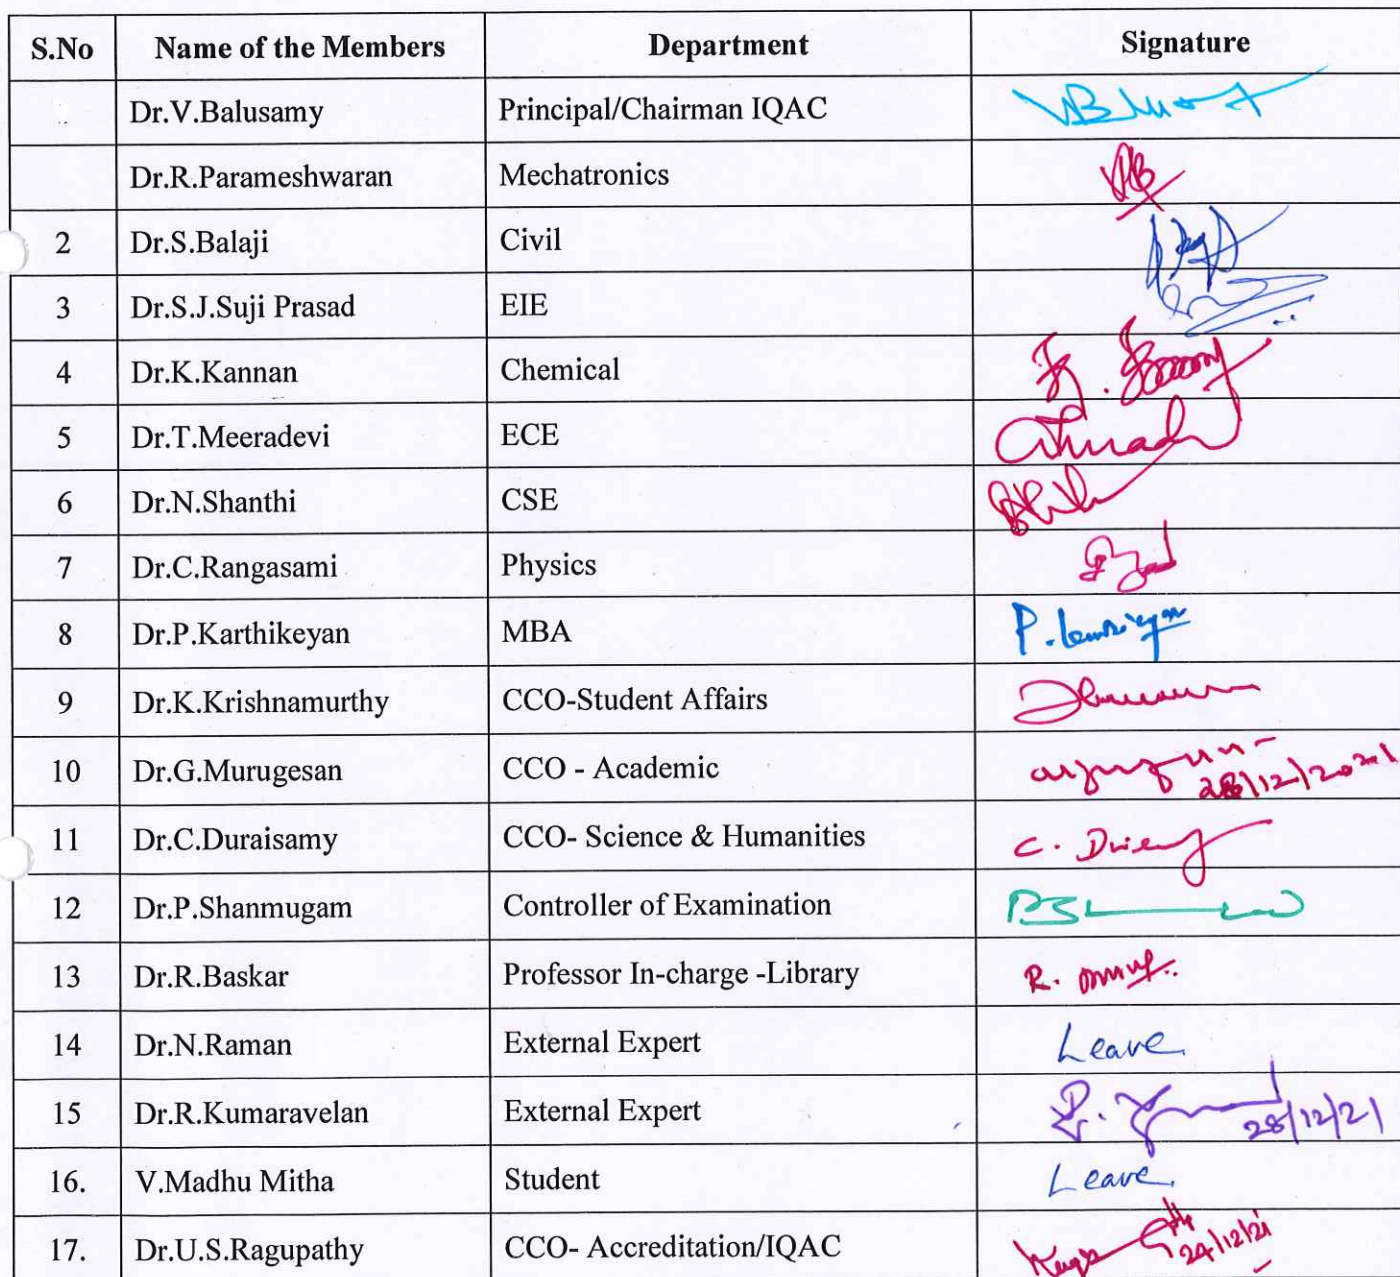 S.No Name of the Members Department Signature
Dr.V.Balusamy Principal/Chairman IQAC
Dr.R.Parameshwaran Mechatronics
2 Dr.S.Balaji Civil
3 Dr.S.J.Suji Prasad EIE
4 Dr.K.Kannan Chemical
5 Dr.T.Meeradevi ECE
6 Dr.N.Shanthi CSE
7 Dr.C.Rangasami Physics
8 Dr.P.Karthikeyan MBA P.
9 Dr.K.Krishnamurthy CCO-Student Affairs
10 Dr.G.Murugesan CCO - Academic 28/12/2021
11 Dr.C.Duraisamy CCO- Science & Humanities C.
12 Dr.P.Shanmugam Controller of Examination
13 Dr.R.Baskar Professor In-charge -Library R.
14 Dr.N.Raman External Expert Leave
15 Dr.R.Kumaravelan External Expert 28/12/21
16. V.Madhu Mitha Student Leave
17. Dr.U.S.Ragupathy CCO- Accreditation/IQAC 24/12/21